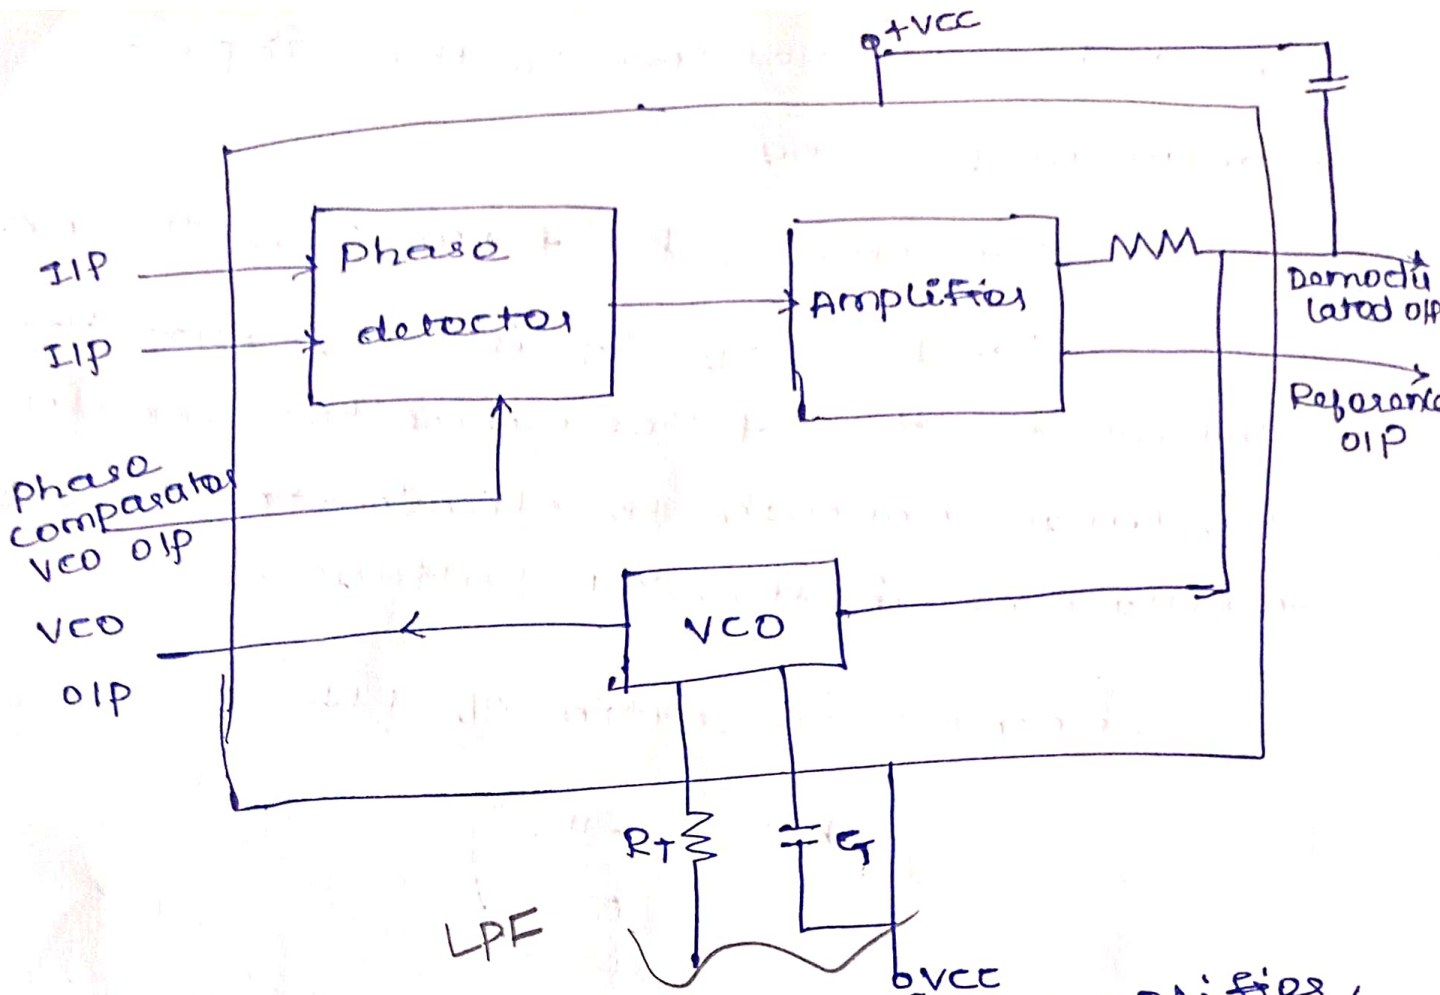 +VCC
I/P
phase
detector
Amplifier
Demodu
lated O/P
I/P
Reference
O/P
phase
comparator
VCO O/P
VCO
O/P
VCO
RT
CT
LPF
VCC